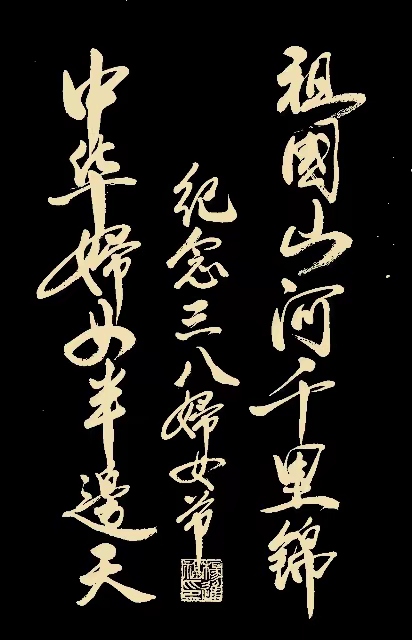 祖國山河千里錦
中华婦女半邊天
纪念三八婦女节